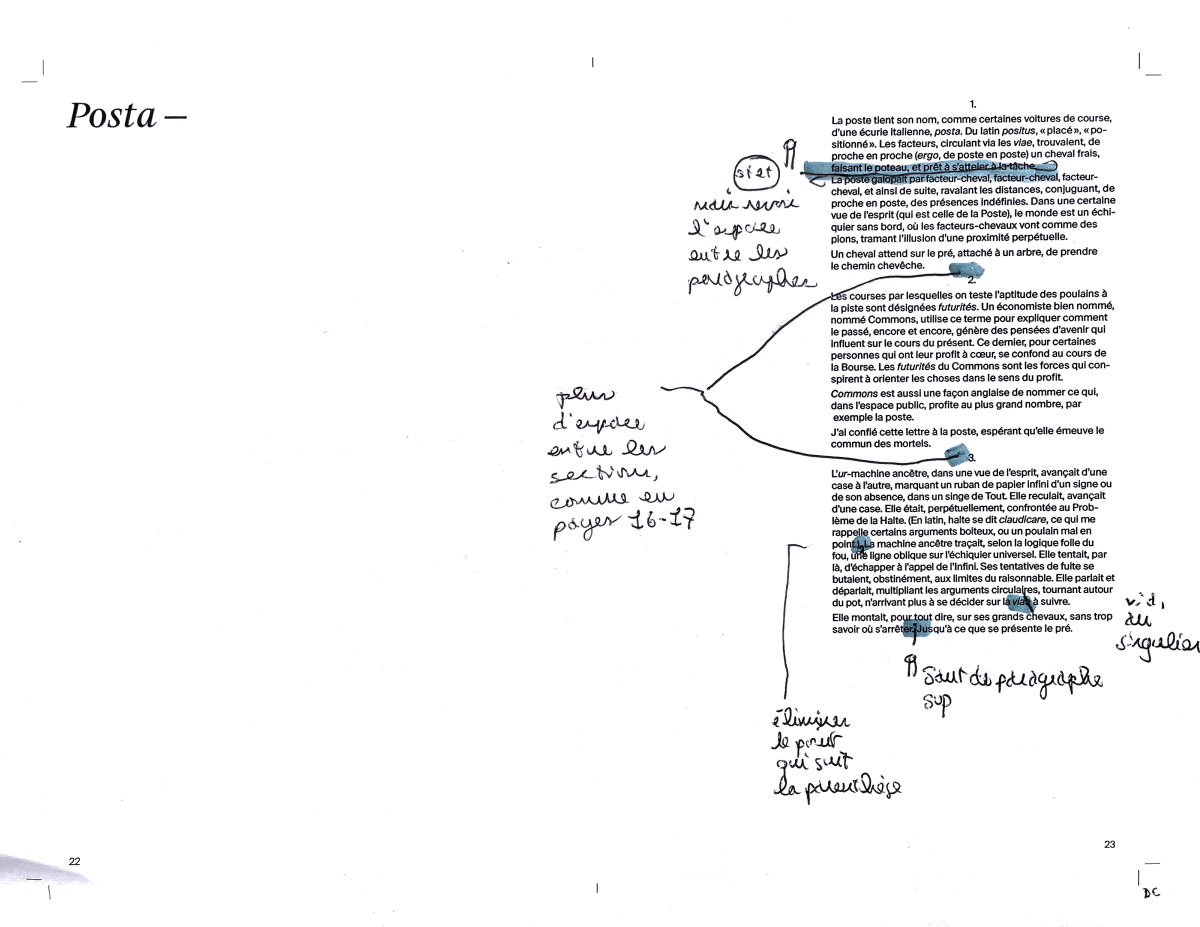 Posta –
1.
La poste tient son nom, comme certaines voitures de course,
d'une écurie italienne, posta. Du latin positus, « placé », « po-
sitionné ». Les facteurs, circulant via les viae, trouvaient, de
proche en proche (ergo, de poste en poste) un cheval frais,
faisant le poteau, et prêt à s'atteler à la tâche.
La poste galopait par facteur-cheval, facteur-cheval, facteur-
cheval, et ainsi de suite, ravalant les distances, conjuguant, de
proche en poste, des présences indéfinies. Dans une certaine
vue de l'esprit (qui est celle de la Poste), le monde est un échi-
quier sans bord, où les facteurs-chevaux vont comme des
pions, tramant l'illusion d'une proximité perpétuelle.
Un cheval attend sur le pré, attaché à un arbre, de prendre
le chemin chevêche.
stet
mais revoir
l'espace
entre les
paragraphes
2.
Les courses par lesquelles on teste l'aptitude des poulains à
la piste sont désignées futurités. Un économiste bien nommé,
nommé Commons, utilise ce terme pour expliquer comment
le passé, encore et encore, génère des pensées d'avenir qui
influent sur le cours du présent. Ce dernier, pour certaines
personnes qui ont leur profit à cœur, se confond au cours de
la Bourse. Les futurités du Commons sont les forces qui con-
spirent à orienter les choses dans le sens du profit.
Commons est aussi une façon anglaise de nommer ce qui,
dans l'espace public, profite au plus grand nombre, par
exemple la poste.
J'ai confié cette lettre à la poste, espérant qu'elle émeuve le
commun des mortels.
plus
d'espace
entre les
sections,
comme en
pages 16-17
3.
L'ur-machine ancêtre, dans une vue de l'esprit, avançait d'une
case à l'autre, marquant un ruban de papier infini d'un signe ou
de son absence, dans un singe de Tout. Elle reculait, avançait
d'une case. Elle était, perpétuellement, confrontée au Prob-
lème de la Halte. (En latin, halte se dit claudicare, ce qui me
rappelle certains arguments boiteux, ou un poulain mal en
point.). La machine ancêtre traçait, selon la logique folle du
fou, une ligne oblique sur l'échiquier universel. Elle tentait, par
là, d'échapper à l'appel de l'Infini. Ses tentatives de fuite se
butaient, obstinément, aux limites du raisonnable. Elle parlait et
déparlait, multipliant les arguments circulaires, tournant autour
du pot, n'arrivant plus à se décider sur la viae à suivre.
Elle montait, pour tout dire, sur ses grands chevaux, sans trop
savoir où s'arrêter. Jusqu'à ce que se présente le pré.
au
singulier
Saut de paragraphe
sup
éliminer
le point
qui suit
la parenthèse
22
23
DC